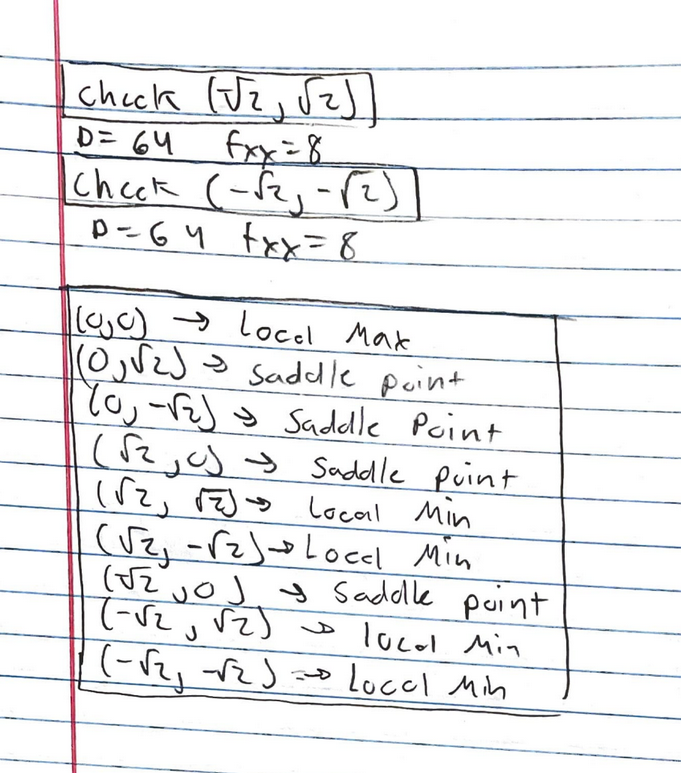 Check (√2, √2)
D = 64 fxx = 8
Check (-√2, -√2)
D = 64 fxx = 8
(0,0) → Local Max
(0,√2) → Saddle point
(0, -√2) → Saddle Point
(√2, 0) → Saddle point
(√2, √2) → Local Min
(√2, -√2) → Local Min
(√2, 0) → Saddle point
(-√2, √2) → local Min
(-√2, -√2) → Local Min